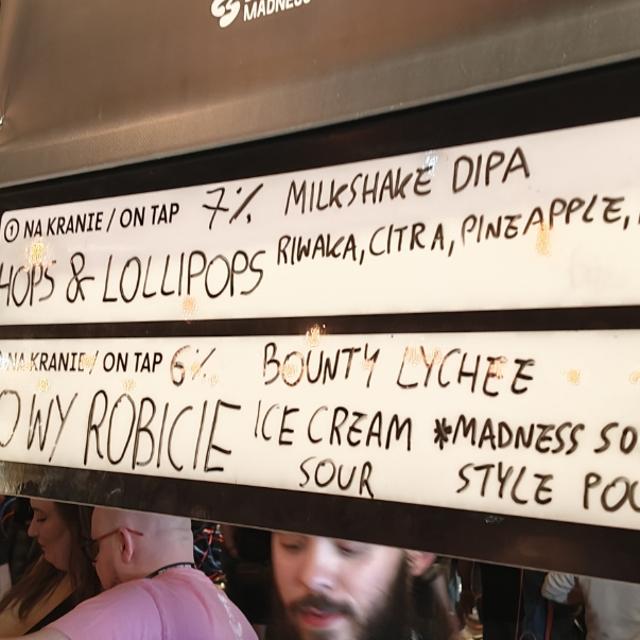 MADNESS
NA KRANIE / ON TAP 7% MILKSHAKE DIPA
HOPS & LOLLIPOPS RIWAKA, CITRA, PINEAPPLE,
NA KRANIE / ON TAP 6% BOUNTY LYCHEE
OWY ROBICIE ICE CREAM *MADNESS SO
SOUR STYLE POU